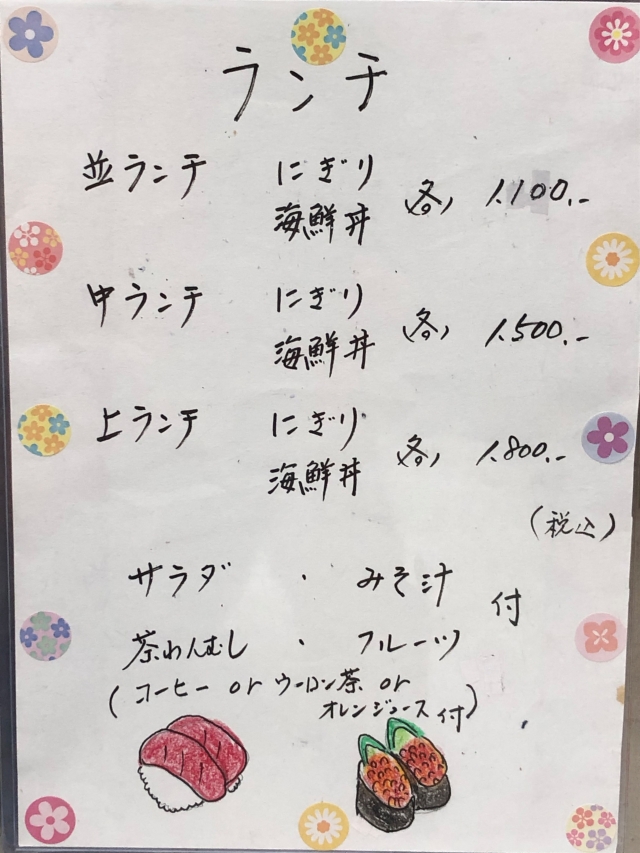 ランチ
並ランチ にぎり
海鮮丼 各、1,100.-
中ランチ にぎり
海鮮丼 各、1,500.-
上ランチ にぎり
海鮮丼 各、1,800.-
(税込)
サラダ ・ みそ汁
付
茶わんむし ・ フルーツ
(コーヒー or ウーロン茶 or
オレンジュース付)